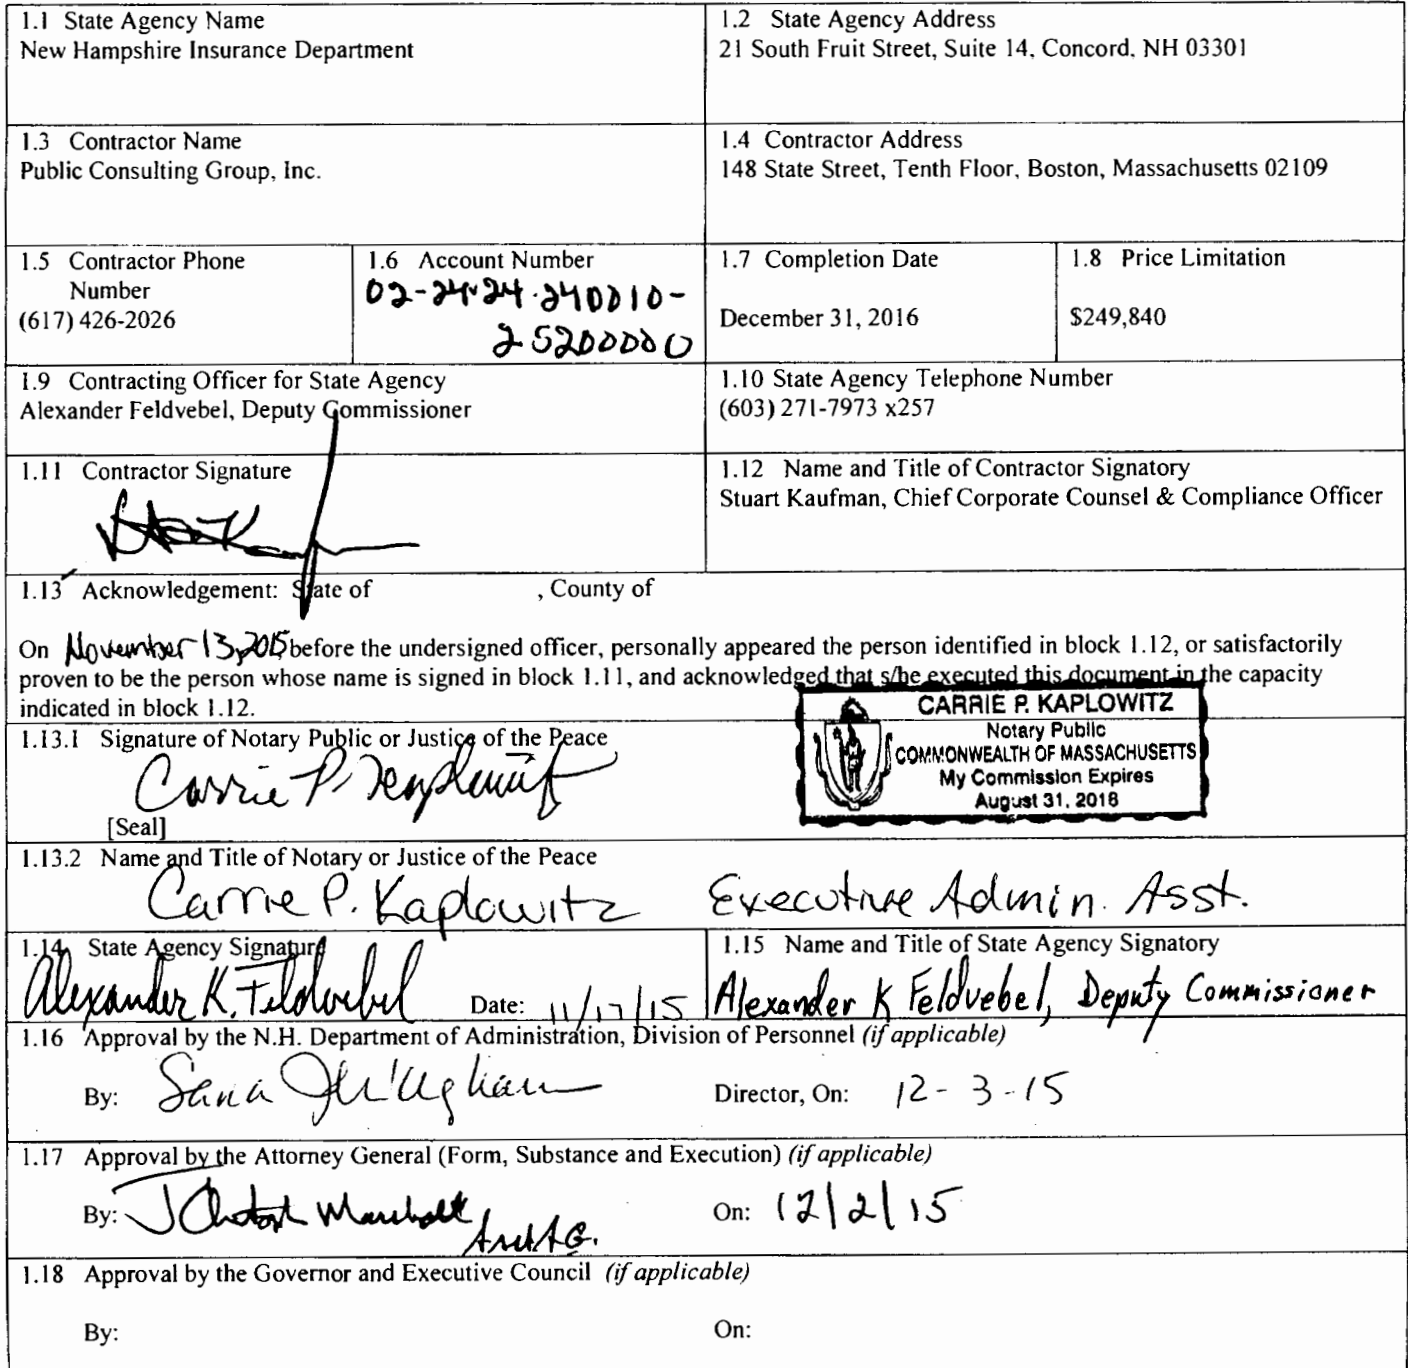 1.1 State Agency Name
New Hampshire Insurance Department
1.2 State Agency Address
21 South Fruit Street, Suite 14, Concord, NH 03301
1.3 Contractor Name
Public Consulting Group, Inc.
1.4 Contractor Address
148 State Street, Tenth Floor, Boston, Massachusetts 02109
1.5 Contractor Phone
Number
(617) 426-2026
1.6 Account Number
02-24-24-240010-
25200000
1.7 Completion Date
December 31, 2016
1.8 Price Limitation
$249,840
1.9 Contracting Officer for State Agency
Alexander Feldvebel, Deputy Commissioner
1.10 State Agency Telephone Number
(603) 271-7973 x257
1.11 Contractor Signature
1.12 Name and Title of Contractor Signatory
Stuart Kaufman, Chief Corporate Counsel & Compliance Officer
1.13 Acknowledgement: State of , County of
On November 13, 2015 before the undersigned officer, personally appeared the person identified in block 1.12, or satisfactorily
proven to be the person whose name is signed in block 1.11, and acknowledged that s/he executed this document in the capacity
indicated in block 1.12.
CARRIE P. KAPLOWITZ
Notary Public
COMMONWEALTH OF MASSACHUSETTS
My Commission Expires
August 31, 2018
1.13.1 Signature of Notary Public or Justice of the Peace
Carrie P Kaplowitz
[Seal]
1.13.2 Name and Title of Notary or Justice of the Peace
Carrie P. Kaplowitz Executive Admin. Asst.
1.14 State Agency Signature
Alexander K. Feldvebel Date: 11/17/15
1.15 Name and Title of State Agency Signatory
Alexander K Feldvebel, Deputy Commissioner
1.16 Approval by the N.H. Department of Administration, Division of Personnel (if applicable)
By: Director, On: 12-3-15
1.17 Approval by the Attorney General (Form, Substance and Execution) (if applicable)
By: On: 12/2/15
1.18 Approval by the Governor and Executive Council (if applicable)
By: On: